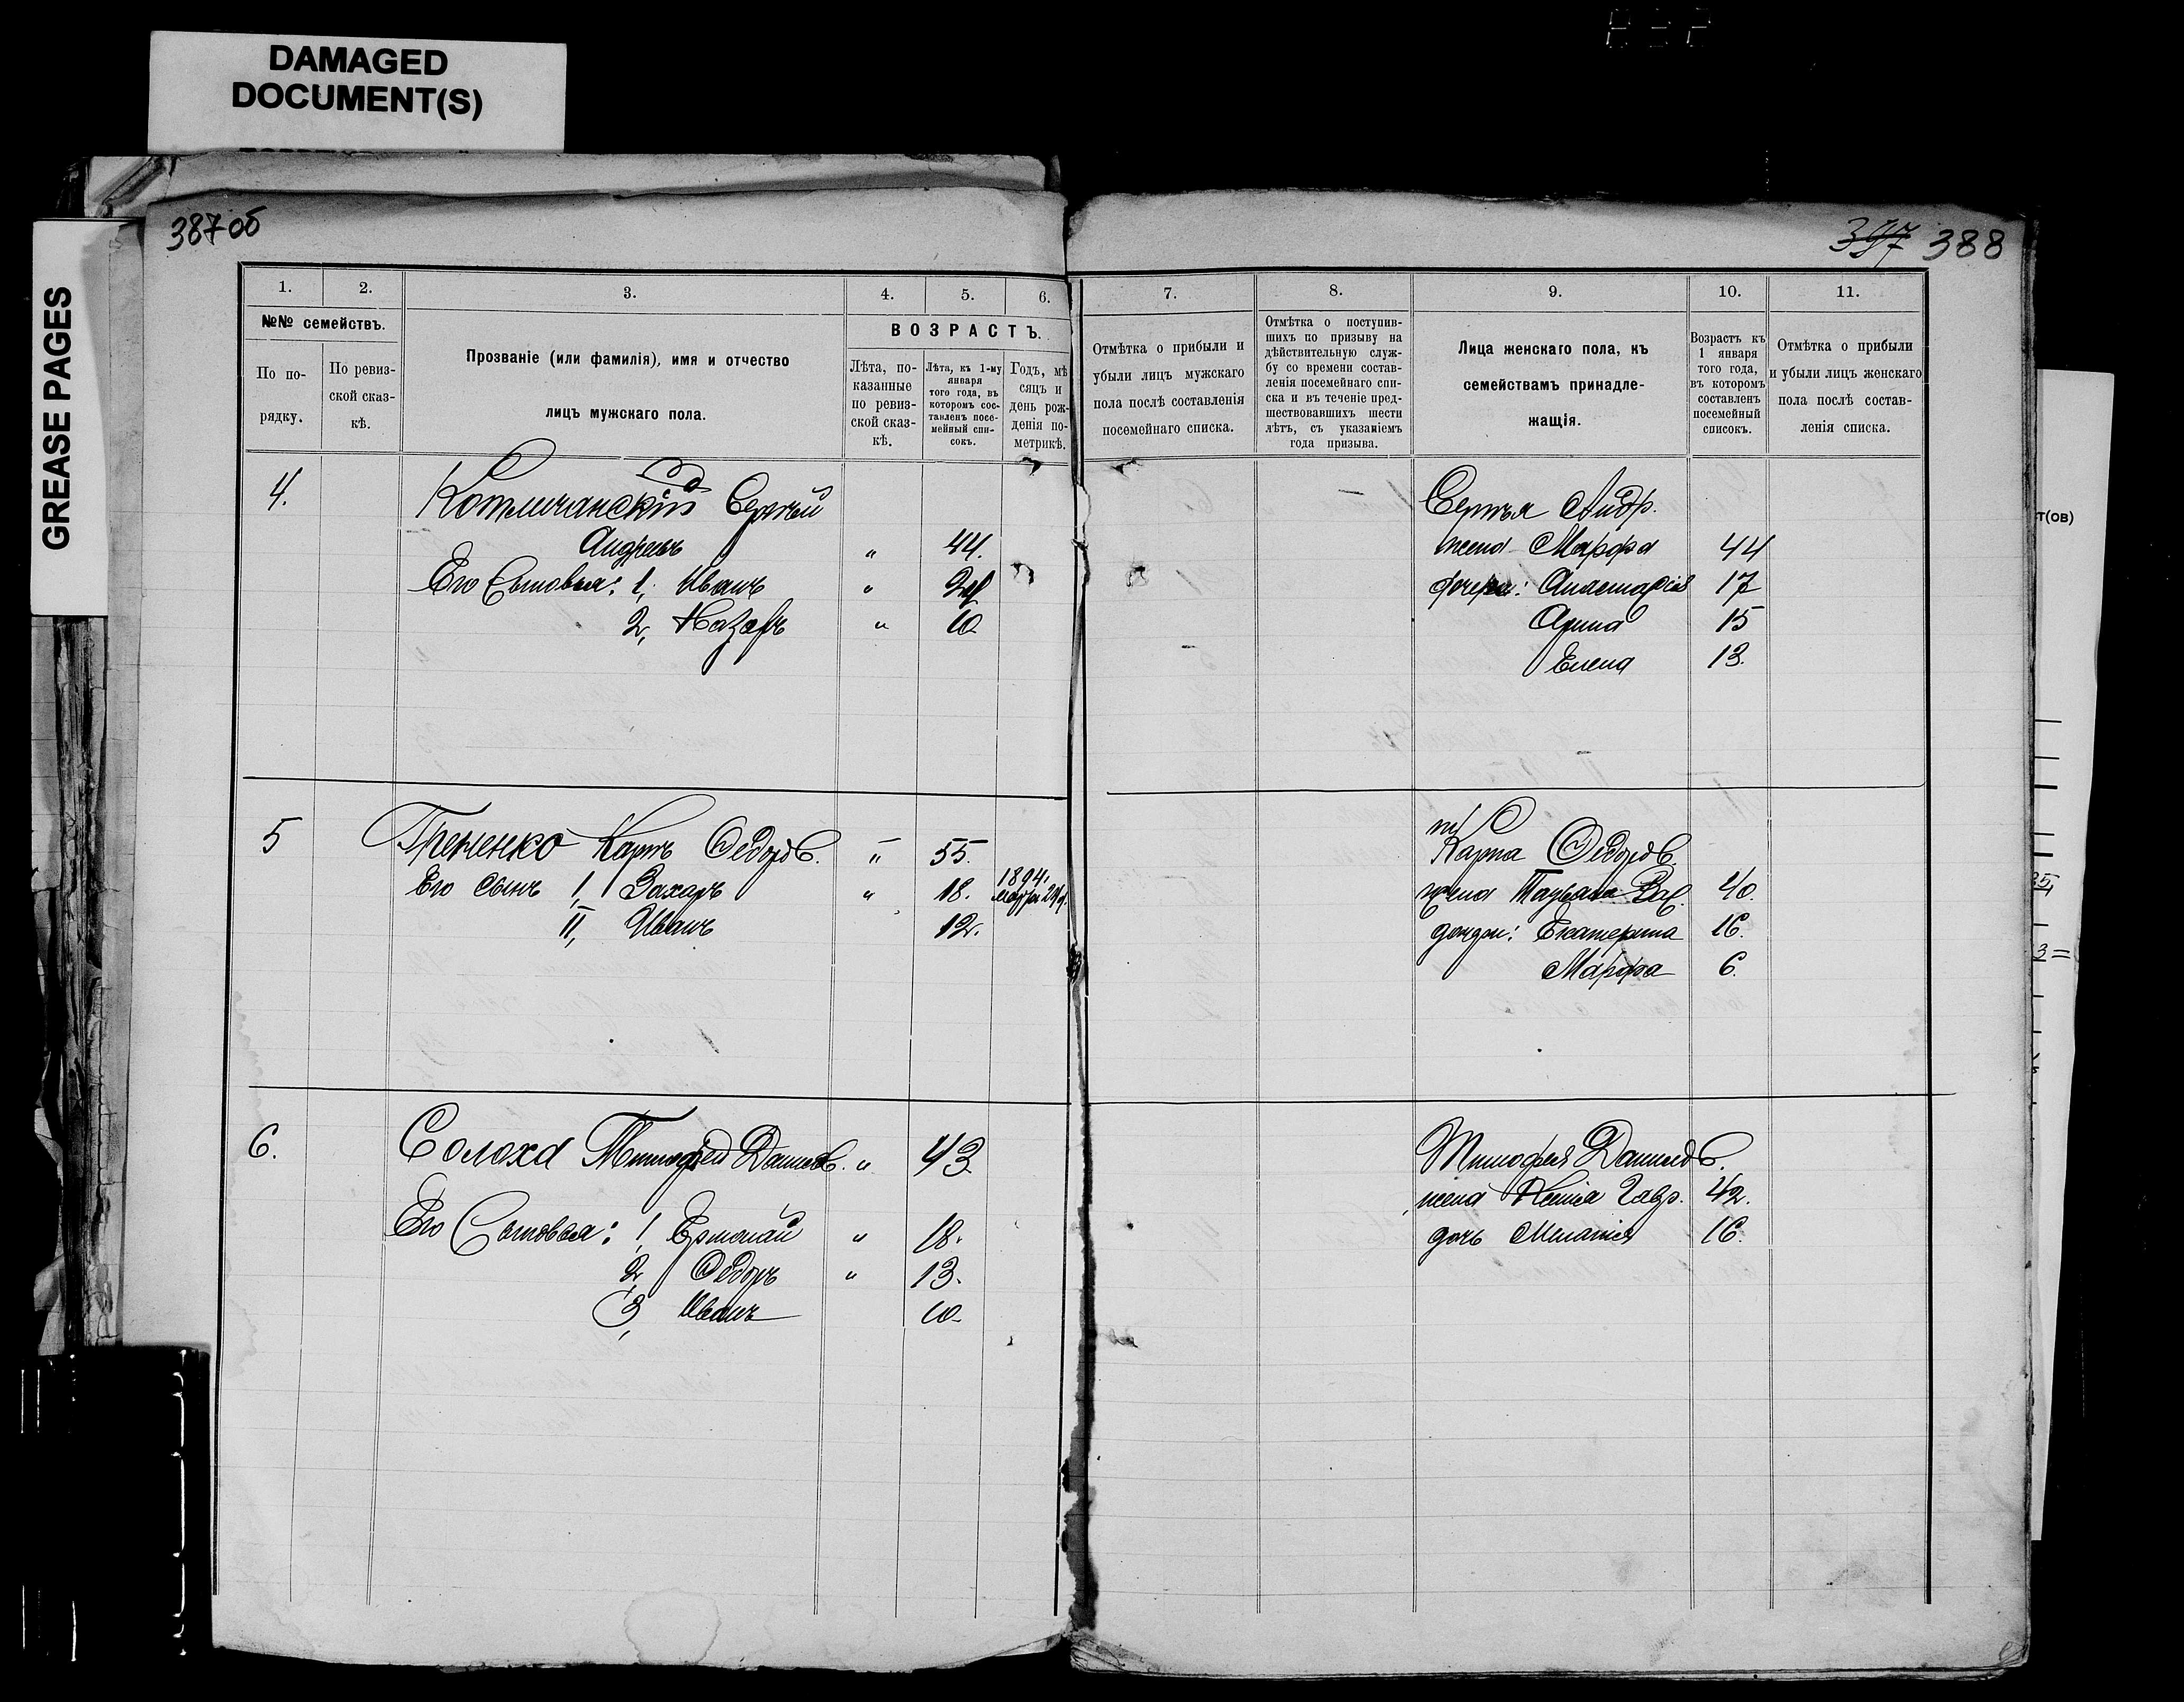 DAMAGED
DOCUMENT(S)
GREASE PAGES
387об
397 388
1.
2.
3.
4.
5.
6.
7.
8.
9.
10.
11.
№№ семействъ.
По по-
рядку.
По ревиз-
ской сказ-
кѣ.
Прозваніе (или фамилія), имя и отчество
лицъ мужскаго пола.
ВОЗРАСТЪ.
Лѣта, по-
казанные
по ревиз-
ской сказ-
кѣ.
Лѣта, къ 1-му
января
того года, въ
которомъ сос-
тавленъ посе-
мейный спи-
сокъ.
Годъ, мѣ
сяцъ и
день рож-
денія по-
метрикѣ.
Отмѣтка о прибыли и
убыли лицъ мужскаго
пола послѣ составленія
посемейнаго списка.
Отмѣтка о поступив-
шихъ по призыву на
дѣйствительную служ-
бу со времени состав-
ленія посемейнаго спи-
ска и въ теченіе пред-
шествовавшихъ шести
лѣтъ, съ указаніемъ
года призыва.
Лица женскаго пола, къ
семействамъ принадле-
жащія.
Возрастъ къ
1 января
того года,
въ которомъ
составленъ
посемейный
списокъ.
Отмѣтка о прибыли
и убыли лицъ женскаго
пола послѣ состав-
ленія списка.
4. Котличанскій Сергѣй
Андреевъ " 44.
Его Сыновья: 1, Иванъ " 24
2, Назаръ " 10
Сергѣя Андр.
жена Марфа 44
дочери: Анастасія 17
Арина 15
Елена 13.
5 Гръченко Карпъ Ѳедоров. " 55.
Его сынъ 1, Захаръ " 18. 1894.
марта 24 д.
II, Иванъ 12.
Карпа Ѳедоров.
жена Татьяна 40.
дочери: Екатерина 16.
Марфа 6.
6. Солоха Тимофей Данилов. " 43.
Его Сыновья: 1, Ермолай " 18.
2, Ѳедоръ " 13.
3, Иванъ 10
Тимофея Данилов.
жена Ксенія Гавр. 42.
дочь Меланія 16.
т(ов)